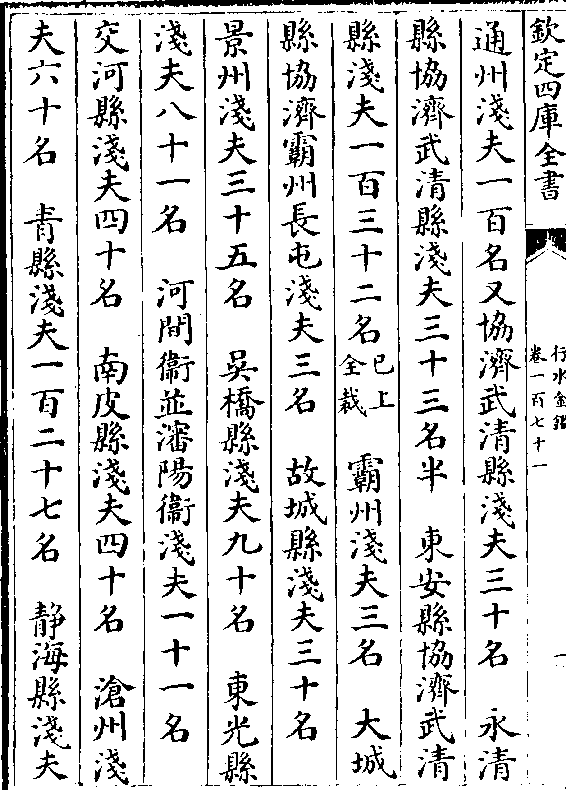 欽定四庫全書
行水金鑑
卷一百七十一
一
通州淺夫一百名又協濟武清縣淺夫三十名　永清
縣協濟武清縣淺夫三十三名半　東安縣協濟武清
縣淺夫一百三十二名已上全裁　霸州淺夫三名　大城
縣協濟霸州長屯淺夫三名　故城縣淺夫三十名
景州淺夫三十五名　吳橋縣淺夫九十名　東光縣
淺夫八十一名　河間衞並瀋陽衞淺夫一十一名
交河縣淺夫四十名　南皮縣淺夫四十名　滄州淺
夫六十名　青縣淺夫一百二十七名　靜海縣淺夫